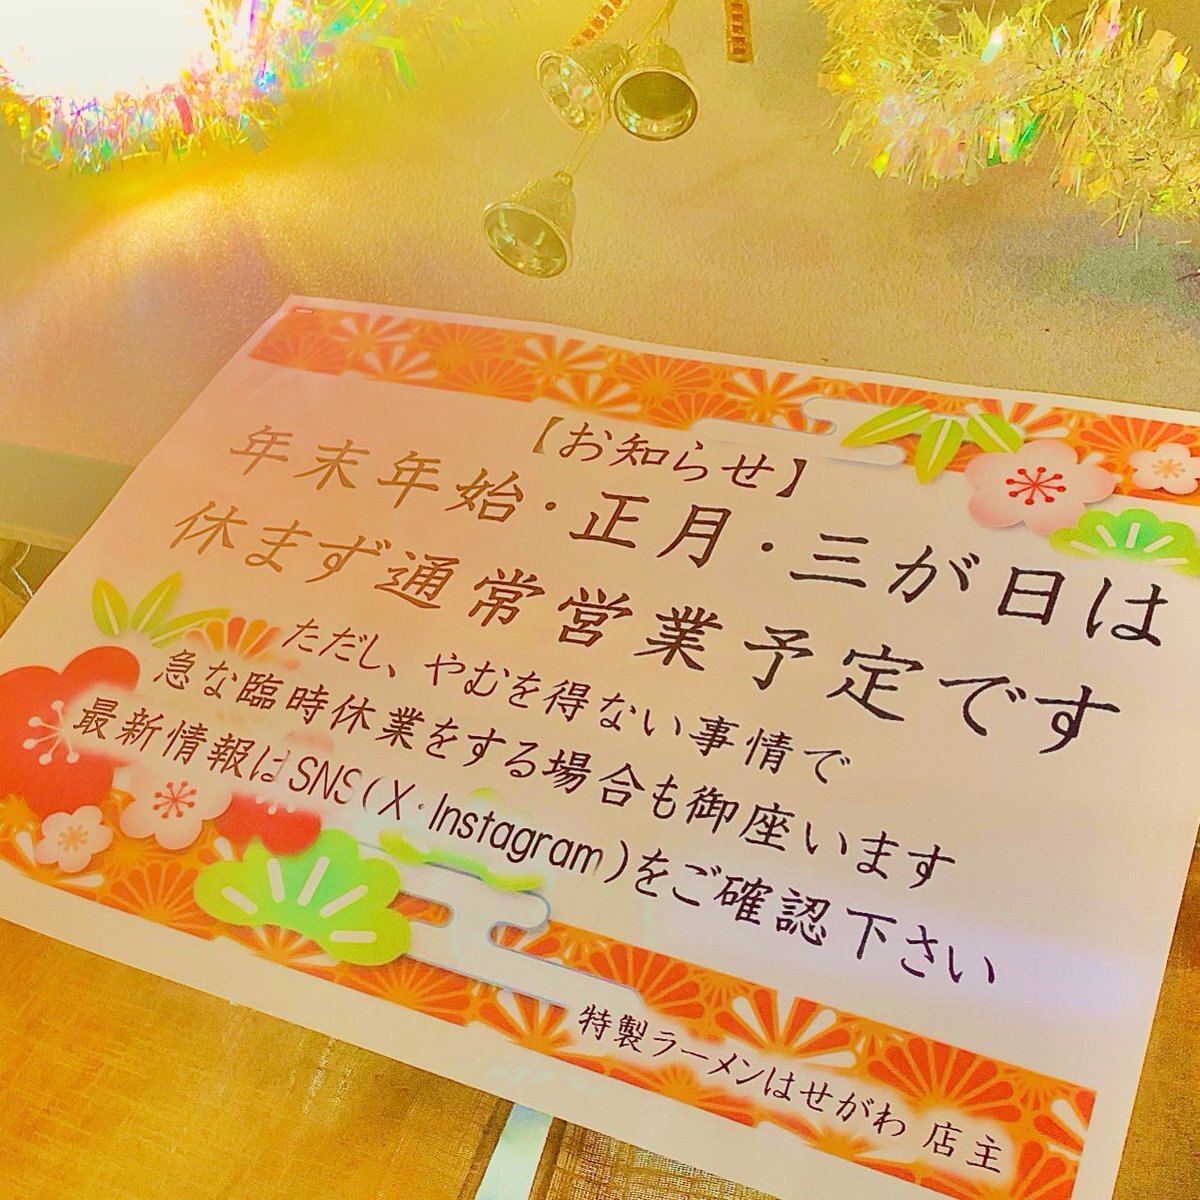 【お知らせ】
年末年始・正月・三が日は
休まず通常営業予定です
ただし、やむを得ない事情で
急な臨時休業をする場合も御座います
最新情報はSNS(X・Instagram)をご確認下さい
特製ラーメンはせがわ 店主